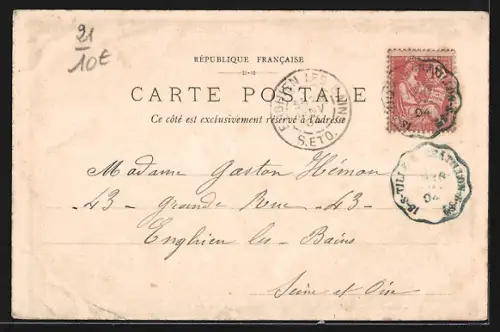 21
10€
RÉPUBLIQUE FRANÇAISE
CARTE POSTALE
Ce côté est exclusivement réservé à l'adresse
ENGHIEN LES BAINS
S. ET O.
IS-S-TILLE
04
Madame Gaston Hémon
43 - Grande Rue - 43 -
Enghien les - Bains
Seine et Oise